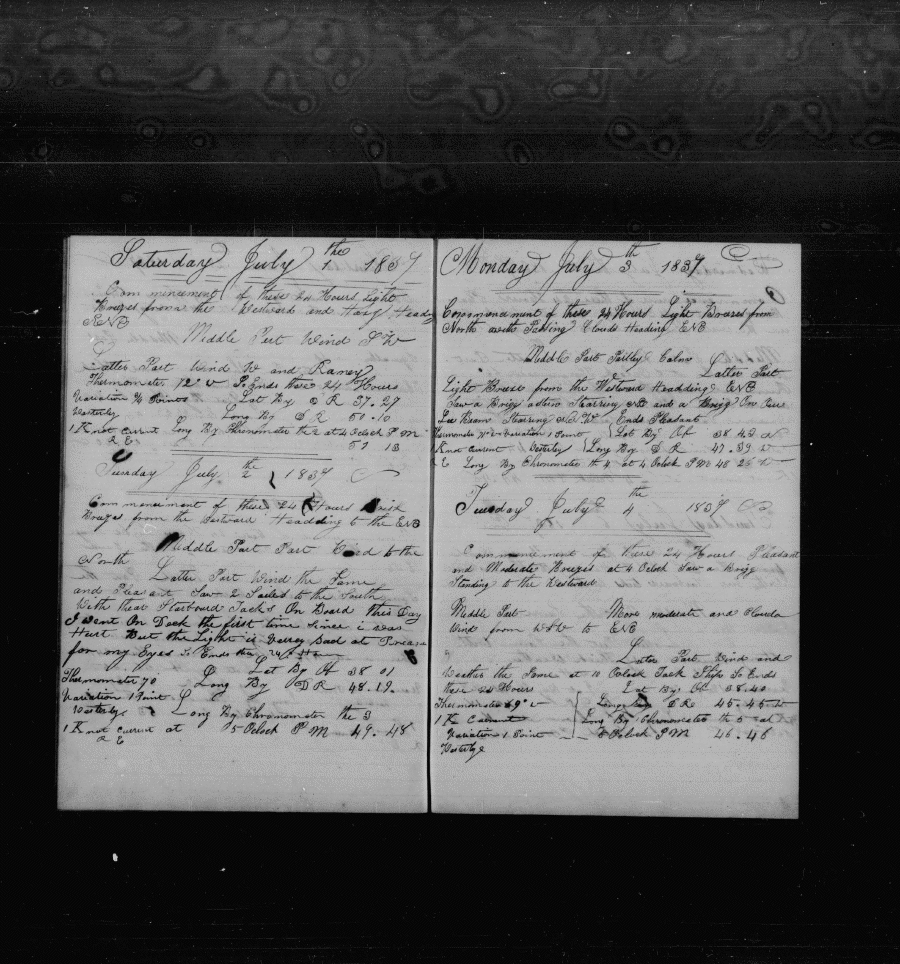 Saturday July 1the 1837
Commencement of these 24 Hours Light
Breezes from the Westward and Hazy Heading
ENE
Middle Part Wind SW
Latter Part Wind W and Raney
Thermometer 72° So Ends these 24 Hours
Variation ¾ Points Lat By D R 37.27
Westerly Long By D R 50.10
1 Knot Current Long By Chronometer the 2 at 4 Oclock P M
R E 51 13
Sunday July 2the 1837
Commencement of these 24 Hours Brisk
Breezes from the Westward Headding to the ENE
Middle Part Part Wind to the
North Latter Part Wind the Same
and Pleasant Saw 2 Sailes to the South
With their Starboard Tacks On Board This Day
I Went On Deck the first time Since i was
Hurt But the Light is Verrey Bad at Presant
for my Eyes So Ends the 24 Hours
Lat By Ob 38 01
Thermometer 70 Long By D R 48.19.
Variation 1 Point Long By Chronometer the 3
Westerly
1 Knot Current at 5 Oclock P M 49.48
R E
Monday July 3th 1837
Commencement of these 24 Hours Light Breezes from
North with Passing Clouds Heading ENE
Middle Part Partley Calm
Latter Part
Light Breeze from the Westward Headding ENE
Saw a Brigg astern Stearing and a Brigg On Our
Lee Beam Stearing Ends Pleasant
Variation 1 Point Lat By Ob 38 43 N
Knot Current Westerly Long By D R 47.39 W
E Long By Chronometer the 4 at 4 Oclock P M 48 25 W
Tuesday July 4th 1837
Commencement of these 24 Hours Pleasant
and Moderate Breezes at 4 Oclock Saw a Brigg
Standing to the Westward
Middle Part More moderate and Cloudy
Wind from to ENE
Later Part Wind and
Weather the Same at 10 Oclock Tack Ship So Ends
these 24 Hours Lat By Ob 38.40
Thermometer 69° Long By D R 45.45 W
1 K Current Long By Chronometer the 5 at
Variation 1 Point Oclock P M 46.46
Westerly